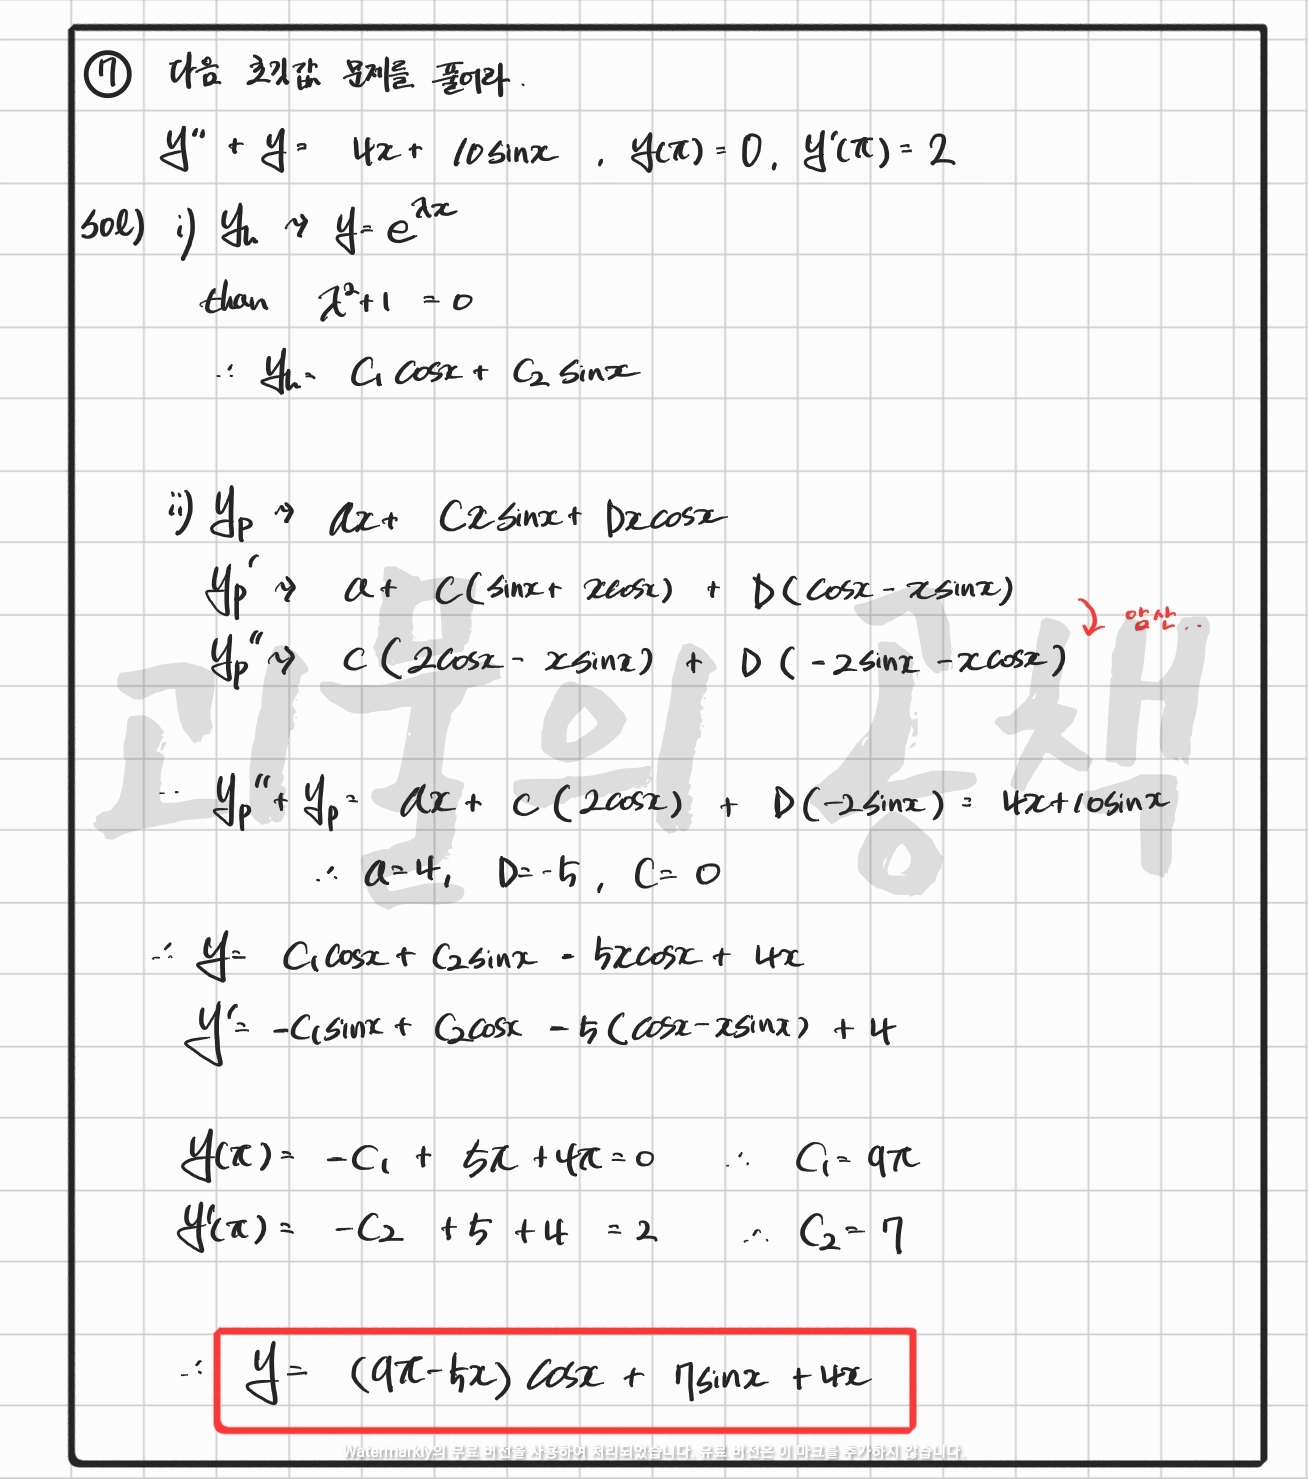 ⑦ 다음 초깃값 문제를 풀어라.
y'' + y = 4x + 10sinx , y(π) = 0, y'(π) = 2
sol) i) y_h ⇝ y = e^{λx}
than λ²+1 = 0
∴ y_h = C₁ cosx + C₂ sinx
ii) y_p ⇝ ax + Cxsinx + Dxcosx
y_p' ⇝ a + C(sinx + xcosx) + D(cosx - xsinx)
암산..
y_p'' ⇝ C(2cosx - xsinx) + D(-2sinx - xcosx)
괴물의 공책
∴ y_p'' + y_p = ax + C(2cosx) + D(-2sinx) = 4x+10sinx
∴ a=4, D=-5, C=0
∴ y = C₁cosx + C₂sinx - 5xcosx + 4x
y' = -C₁sinx + C₂cosx - 5(cosx-xsinx) + 4
y(π) = -C₁ + 5π + 4π = 0 ∴ C₁ = 9π
y'(π) = -C₂ + 5 + 4 = 2 ∴ C₂ = 7
∴ y = (9π-5x) cosx + 7sinx + 4x
Watermarkly의 무료 버전을 사용하여 처리되었습니다. 유료 버전은 이 마크를 추가하지 않습니다.